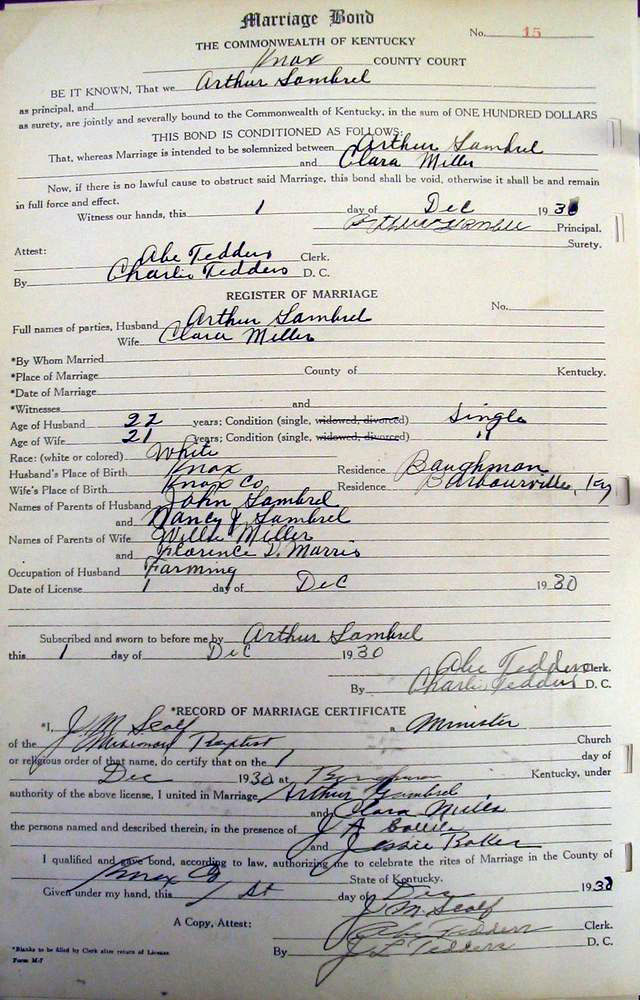 Marriage Bond
No. 15
THE COMMONWEALTH OF KENTUCKY
Knox COUNTY COURT
BE IT KNOWN, That we Arthur Sambrel
as principal, and
as surety, are jointly and severally bound to the Commonwealth of Kentucky, in the sum of ONE HUNDRED DOLLARS
THIS BOND IS CONDITIONED AS FOLLOWS:
That, whereas Marriage is intended to be solemnized between Arthur Sambrel
and Clara Miller
Now, if there is no lawful cause to obstruct said Marriage, this bond shall be void, otherwise it shall be and remain
in full force and effect.
Witness our hands, this 1 day of Dec 1930
Arthur Sambrel Principal.
Surety.
Attest: Abe Tedders Clerk.
By Charlie Tedders D. C.
REGISTER OF MARRIAGE
No.
Full names of parties, Husband Arthur Sambrel
Wife Clara Miller
*By Whom Married
*Place of Marriage County of Kentucky.
*Date of Marriage
*Witnesses and
Age of Husband 22 years; Condition (single, widowed, divorced) Single
Age of Wife 21 years; Condition (single, widowed, divorced) "
Race: (white or colored) White
Husband's Place of Birth Knox Residence Baughman
Wife's Place of Birth Knox Co Residence Barbourville, Ky
Names of Parents of Husband John Sambrel
and Nancy J. Sambrel
Names of Parents of Wife Willie Miller
and Florence D. Morris
Occupation of Husband Farming
Date of License 1 day of Dec 1930
Subscribed and sworn to before me by Arthur Sambrel
this 1 day of Dec 1930
Abe Tedders Clerk.
By Charlie Tedders D. C.
*RECORD OF MARRIAGE CERTIFICATE
*I, J M Scalf a Minister
of the Missionary Baptist Church
or religious order of that name, do certify that on the 1 day of
Dec 1930 at Kentucky, under
authority of the above license, I united in Marriage Arthur Sambrel
and Clara Miller
the persons named and described therein, in the presence of J A
and Jessie
I qualified and gave bond, according to law, authorizing me to celebrate the rites of Marriage in the County of
Knox Co State of Kentucky.
Given under my hand, this 1 St day of Dec 1930
J M Scalf
A Copy, Attest: Abe Tedders Clerk.
By J L Tedders D. C.
*Blanks to be filled by Clerk after return of License.
Form M-7